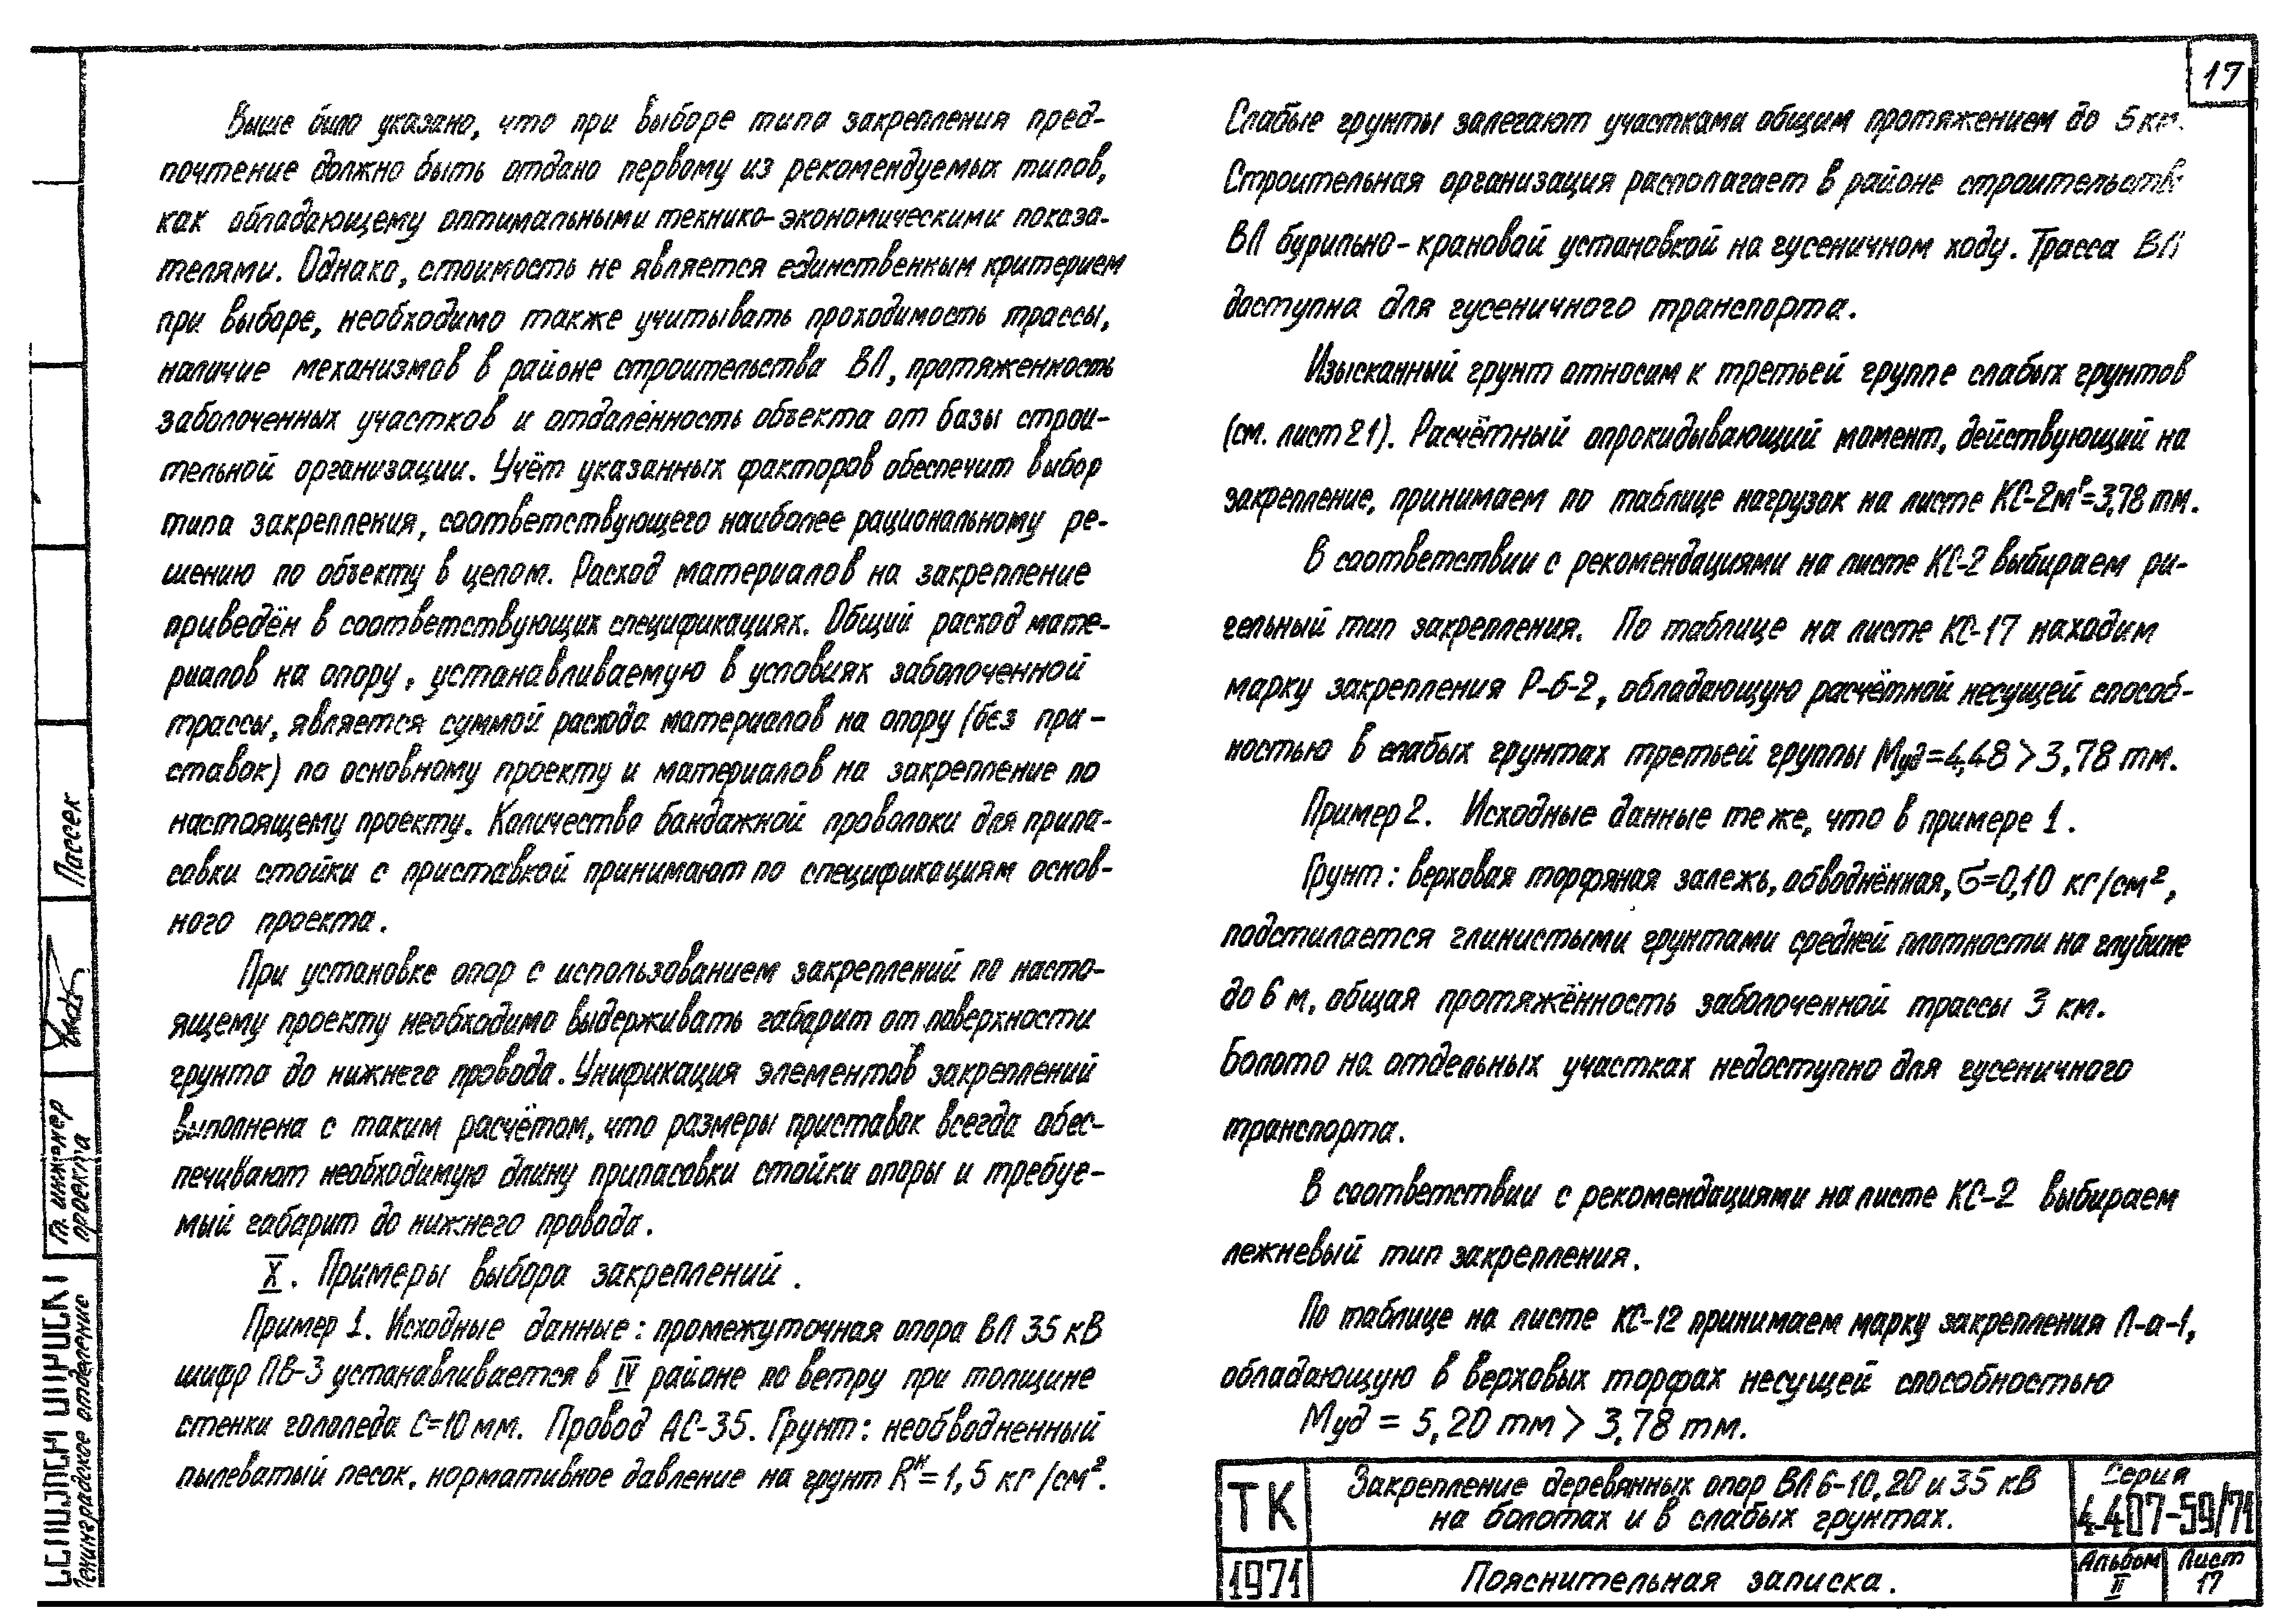 17
Выше было указано, что при выборе типа закрепления пред-
почтение должно быть отдано первому из рекомендуемых типов,
как обладающему оптимальными технико-экономическими показа-
телями. Однако, стоимость не является единственным критерием
при выборе, необходимо также учитывать проходимость трассы,
наличие механизмов в районе строительства ВЛ, протяженность
заболоченных участков и отдалённость объекта от базы строи-
тельной организации. Учёт указанных факторов обеспечит выбор
типа закрепления, соответствующего наиболее рациональному ре-
шению по объекту в целом. Расход материалов на закрепление
приведён в соответствующих спецификациях. Общий расход мате-
риалов на опору, устанавливаемую в условиях заболоченной
трассы, является суммой расхода материалов на опору (без при-
ставок) по основному проекту и материалов на закрепление по
настоящему проекту. Количество бандажной проволоки для припа-
совки стойки с приставкой принимают по спецификациям основ-
ного проекта.
При установке опор с использованием закреплений по насто-
ящему проекту необходимо выдерживать габарит от поверхности
грунта до нижнего провода. Унификация элементов закреплений
выполнена с таким расчётом, что размеры приставок всегда обес-
печивают необходимую длину припасовки стойки опоры и требуе-
мый габарит до нижнего провода.
X. Примеры выбора закреплений.
Пример 1. Исходные данные: промежуточная опора ВЛ 35 кВ
шифр ПВ-3 устанавливается в IV районе по ветру при толщине
стенки гололеда С=10 мм. Провод АС-35. Грунт: необводненный
пылеватый песок, нормативное давление на грунт Rᴴ=1,5 кг/см².
Слабые грунты залегают участками общим протяжением до 5 км.
Строительная организация располагает в районе строительств
ВЛ бурильно-крановой установкой на гусеничном ходу. Трасса ВЛ
доступна для гусеничного транспорта.
Изысканный грунт относим к третьей группе слабых грунтов
(см. лист 21). Расчётный опрокидывающий момент, действующий на
закрепление, принимаем по таблице нагрузок на листе КС-2 Мᵖ=3,78 тм.
В соответствии с рекомендациями на листе КС-2 выбираем ри-
гельный тип закрепления. По таблице на листе КС-17 находим
марку закрепления Р-б-2, обладающую расчётной несущей способ-
ностью в слабых грунтах третьей группы Муд=4,48>3,78 тм.
Пример 2. Исходные данные те же, что в примере 1.
Грунт: верховая торфяная залежь, обводнённая, σ=0,10 кг/см²,
подстилается глинистыми грунтами средней плотности на глубине
до 6 м, общая протяжённость заболоченной трассы 3 км.
Болото на отдельных участках недоступно для гусеничного
транспорта.
В соответствии с рекомендациями на листе КС-2 выбираем
лежневый тип закрепления.
По таблице на листе КС-12 принимаем марку закрепления Л-а-1,
обладающую в верховых торфах несущей способностью
Муд = 5,20 тм > 3,78 тм.
ТК
1971
Закрепление деревянных опор ВЛ 6-10, 20 и 35 кВ
на болотах и в слабых грунтах.
Пояснительная записка.
Серия
4.407-59/71
Альбом
II
Лист
17
Пассек
Гл. инженер
проекта
Ленинградское отделение